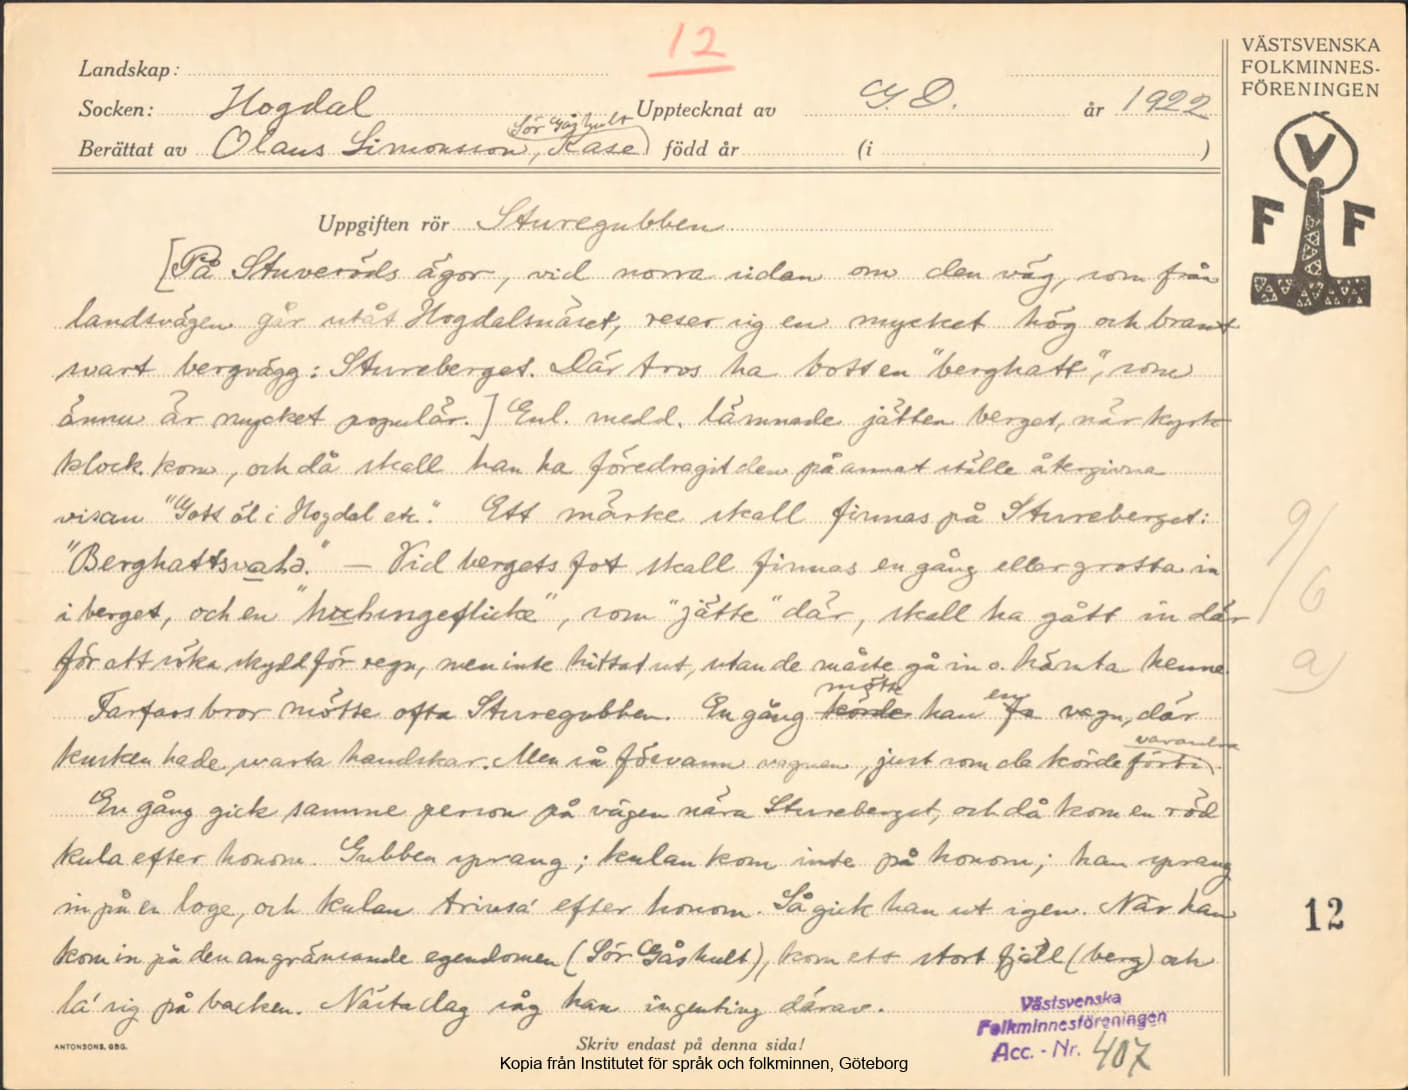 12
VÄSTSVENSKA
FOLKMINNES-
FÖRENINGEN
Landskap:
Socken: Hogdal Upptecknat av G. D. år 1922
Sör Gåshult
Berättat av Olaus Simonsson, Kase) född år (i )
V
F F
Uppgiften rör Sturegubben
[På Stuveröds ägor, vid norra sidan om den väg, som från
landsvägen går utåt Hogdalsnäset, reser sig en mycket hög och brant
svart bergvägg: Stureberget. Där tros ha bott en "berghatt", som
ännu är mycket populär.] Enl. medd. lämnade jätten berget, när kyrk
klock. kom, och då skall han ha föredragit den på annat ställe återgivna
visan "Gott öl i Hogdal etc." Ett märke skall finnas på Stureberget:
"Berghattsvahs." — Vid bergets fot skall finnas en gång eller grotta in
i berget, och en " ", som "jätte" där, skall ha gått in där
för att söka skydd för regn, men inte hittat ut, utan de måste gå in o. hämta henne.
mötte en
Farfars bror mötte ofta Sturegubben. En gång körde han fa vagn, där
varandra
kusken hade svarta handskar. Men så försvann vagnen, just som de körde förbi.
En gång gick samme person på vägen nära Stureberget, och då kom en röd
kula efter honom. Gubben sprang; kulan kom inte på honom; han sprang
in på en loge, och kulan trinsa' efter honom. Så gick han ut igen. När han
kom in på den angränsande egendomen (Sör Gåshult), kom ett stort fjäll (berg) och
la' sig på backen. Nästa dag såg han ingenting därav.
9/6
a)
12
Västsvenska
Folkminnesföreningen
Acc. - Nr. 407
ANTONSONS, GBG.
Skriv endast på denna sida!
Kopia från Institutet för språk och folkminnen, Göteborg